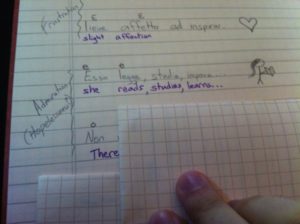 Frustration
ɛ ɛ
lieve affetto ad inspirar
slight affection
Admiration
(Hopelessness)
Essa legge, studia, impara...
she reads, studies, learns...
Non
There